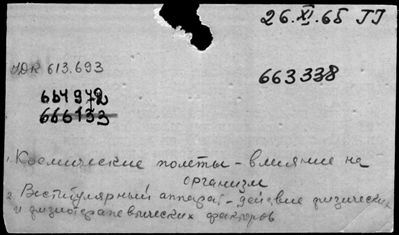 26.XI.65 ТТ
УДК 613.693
663338
664972
666153
1. Космические полеты - влияние на
организм
2. Вестибулярный аппарат - действие физических
и физиотерапевтических факторов